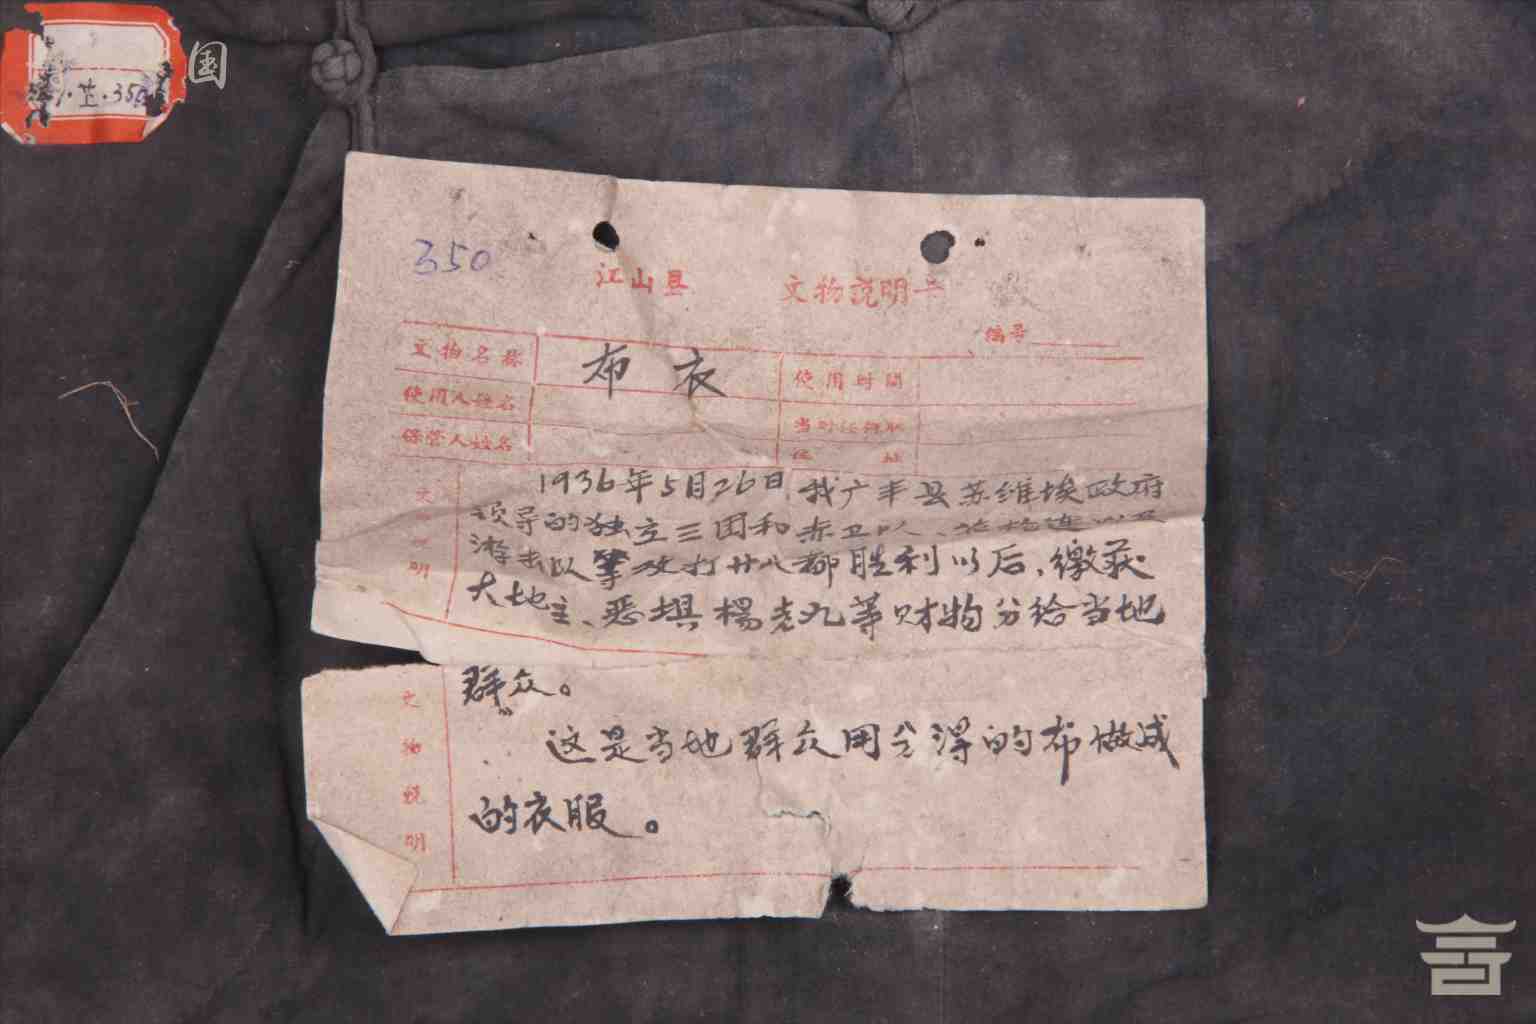 国
350
350
江山县 文物说明卡
编号
文物名称 布衣 使用时间
使用人姓名 当时任何职
保管人姓名 住址
文物说明
1936年5月26日,我广丰县苏维埃政府
领导的独立三团和赤卫队、
游击队等攻打廿八都胜利以后,缴获
大地主、恶埧楊老九等财物分给当地
群众。
文物说明
这是当地群众用分得的布做成
的衣服。